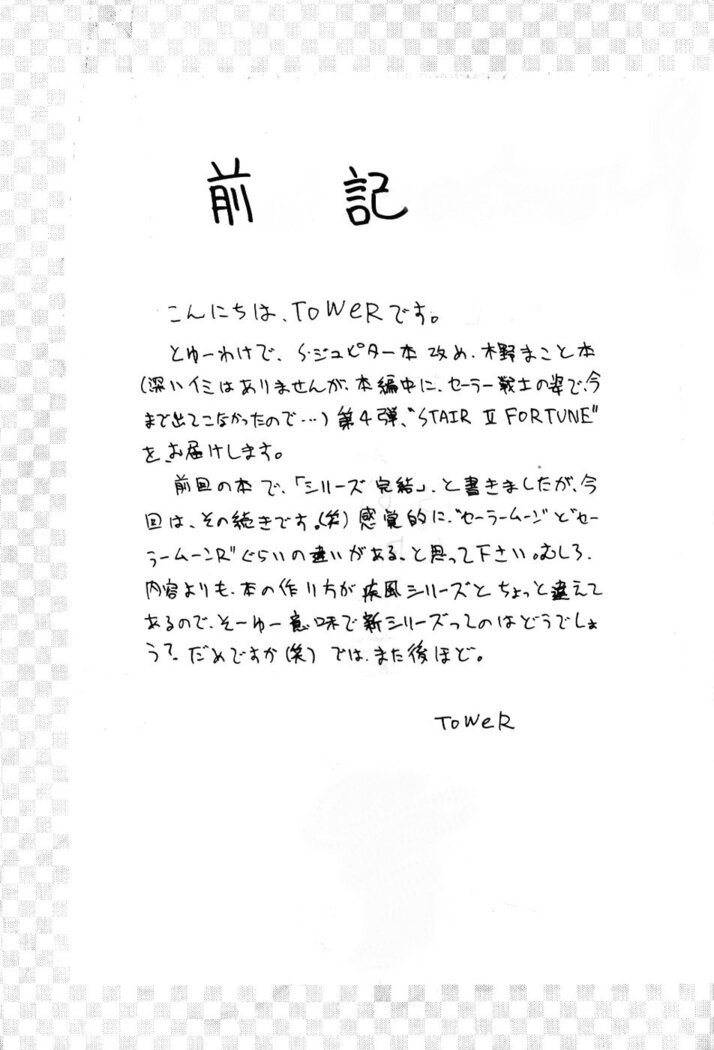 前記
こんにちは、ToWeRです。
とゆーわけで、S・ジュピター本改め、木野まこと本
(深いイミはありませんが、本編中に、セーラー戦士の姿で、今
まで出てこなかったので…)第4弾、“STAIR Ⅱ FORTUNE”
をお届けします。
前回の本で、「シリーズ完結」、と書きましたが、今
回は、その続きです。(笑)感覚的に、“セーラームーン”と“セー
ラームーンR”ぐらいの違いがある、と思って下さい。むしろ、
内容よりも、本の作り方が疾風シリーズとちょっと違えて
あるので、そーゆー意味で新シリーズってのはどうでしょ
う?だめですか(笑)では、また後ほど。
ToWeR